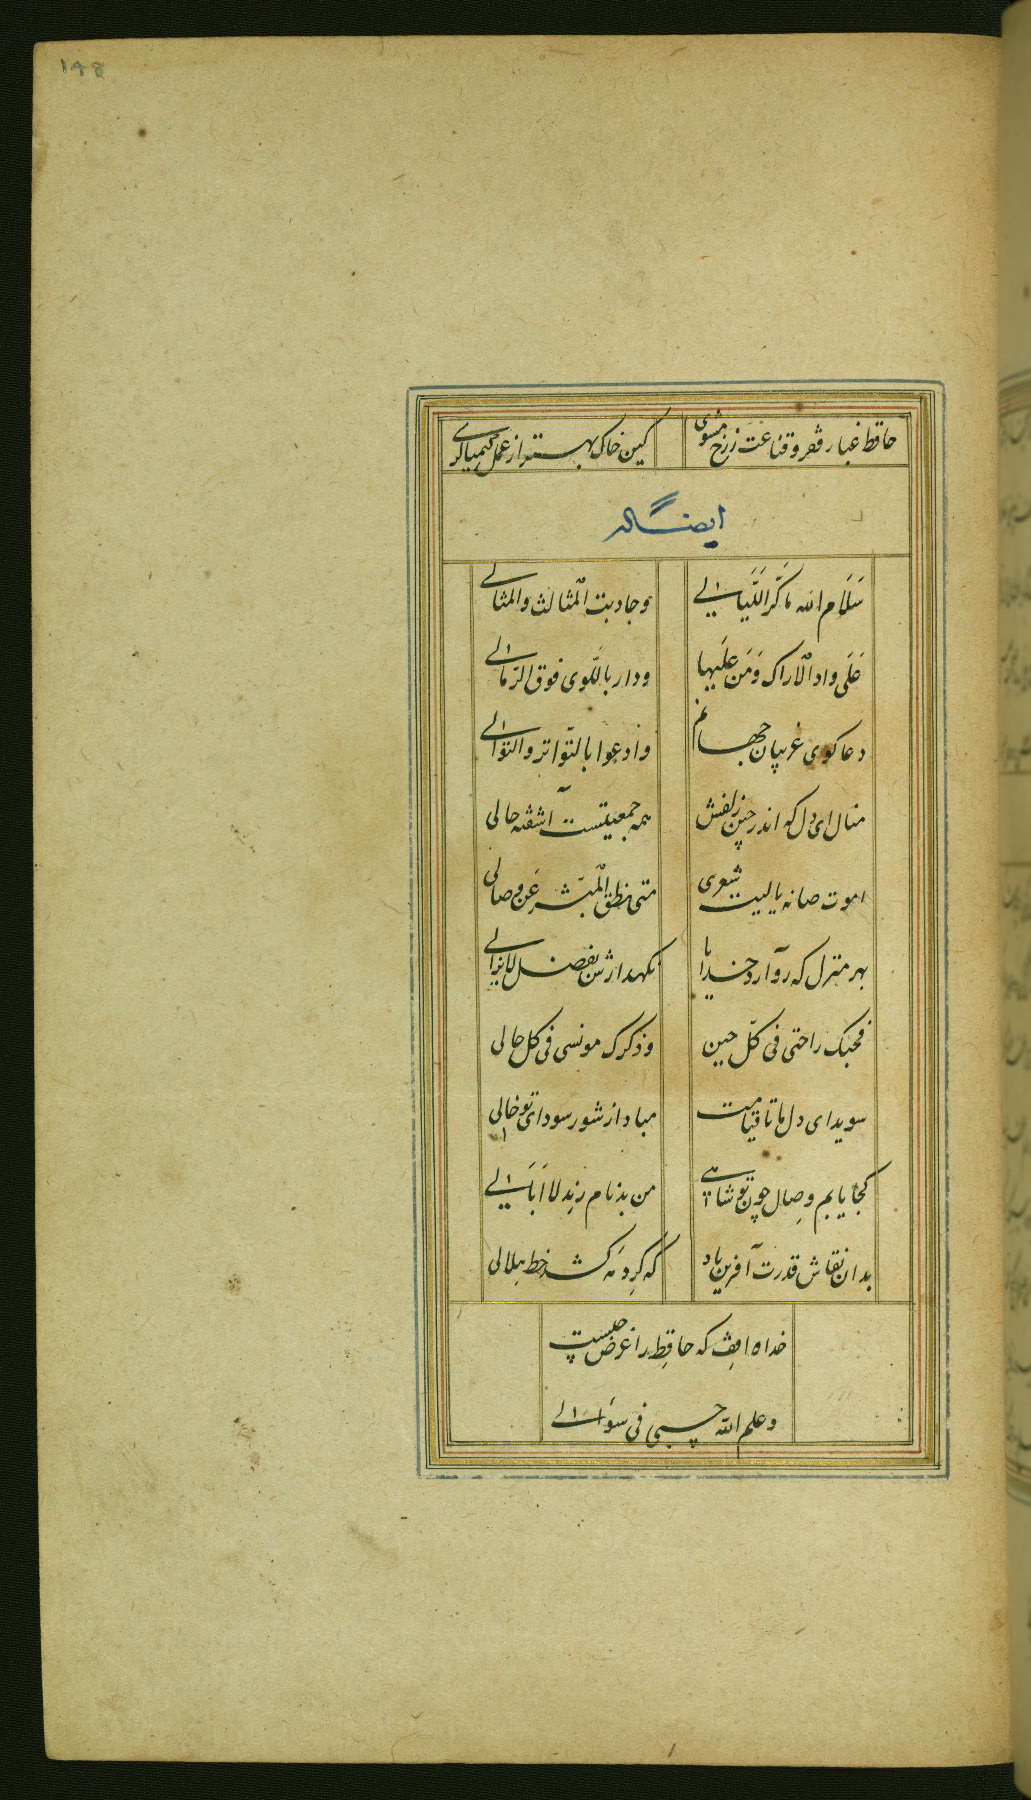 ۱۴۸
حافظ غبار فقر و قناعت ز رخ مشوی کین خاک بهتر از عمل کیمیاگری
ایضاً له
سَلَام الله مَا کَرَّ اللَّیَالِی وجاوبت المثالث والمثالی
عَلَی واد الاراک وَمَن عَلَیها ودار باللّوی فوق الرّمالی
دعاگوی غریبان جهانم وادعوا بالتّواتر والتّوالی
منال ای دل که اندر چین زلفش همه جمعیتست آشفته حالی
اموت صابه یا لیت شعری متی نطق المبّشر عَن وصالی
بهر منزل که رو آرد خدایا نگهدارش بفضل لایزالی
فحبّک راحتی فی کلّ حین وذکرک مونسی فی کل حالی
سویدای دل ما تا قیامت مباد از شور سودای تو خالی
کجا یابم وصال چون تو شاهی من بدنام رند لااُبالی
بدان نقاش قدرت آفرین باد که گرد مه کشد خط هلالی
خداه اقف که حافظ را غرض چیست
وعلم الله حسبی فی سوالی